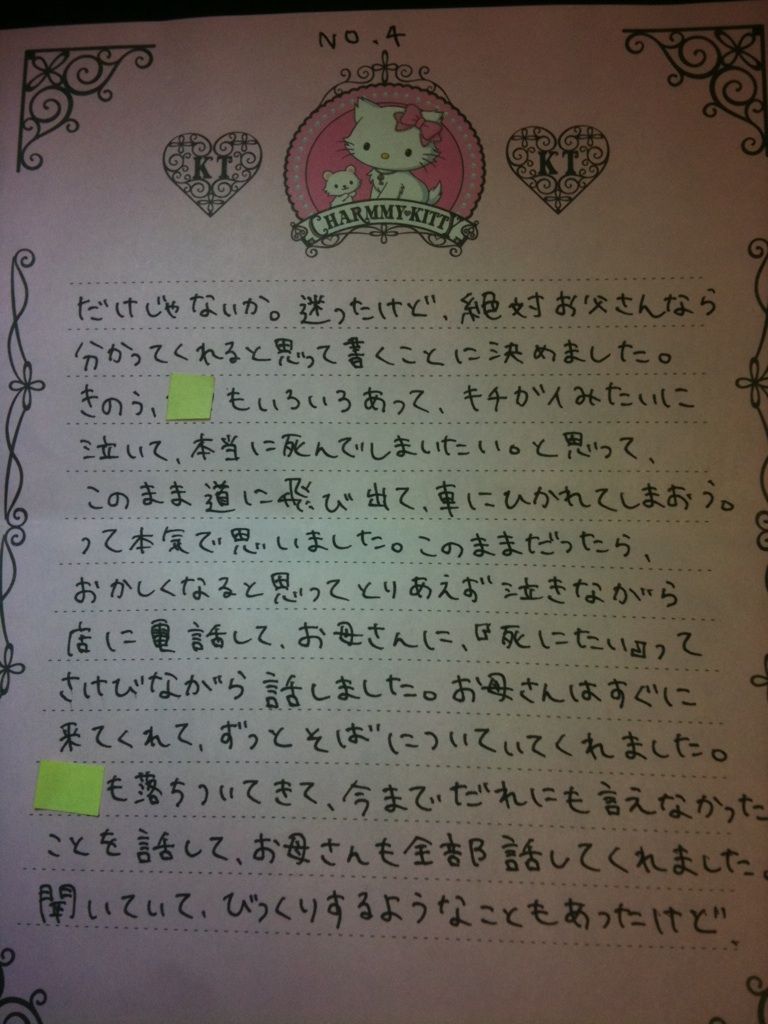 NO.4
KT
KT
CHARMMY KITTY
だけじゃないか。迷ったけど、絶対お父さんなら
分かってくれると思って書くことに決めました。
きのう、もいろいろあって、キチガイみたいに
泣いて、本当に死んでしまいたい。と思って、
このまま道に飛び出て、車にひかれてしまおう。
って本気で思いました。このままだったら、
おかしくなると思ってとりあえず泣きながら
店に電話して、お母さんに、『死にたい』って
さけびながら話しました。お母さんはすぐに
来てくれて、ずっとそばについていてくれました。
も落ちついてきて、今までだれにも言えなかった
ことを話して、お母さんも全部話してくれました。
聞いていて、びっくりするようなこともあったけど、